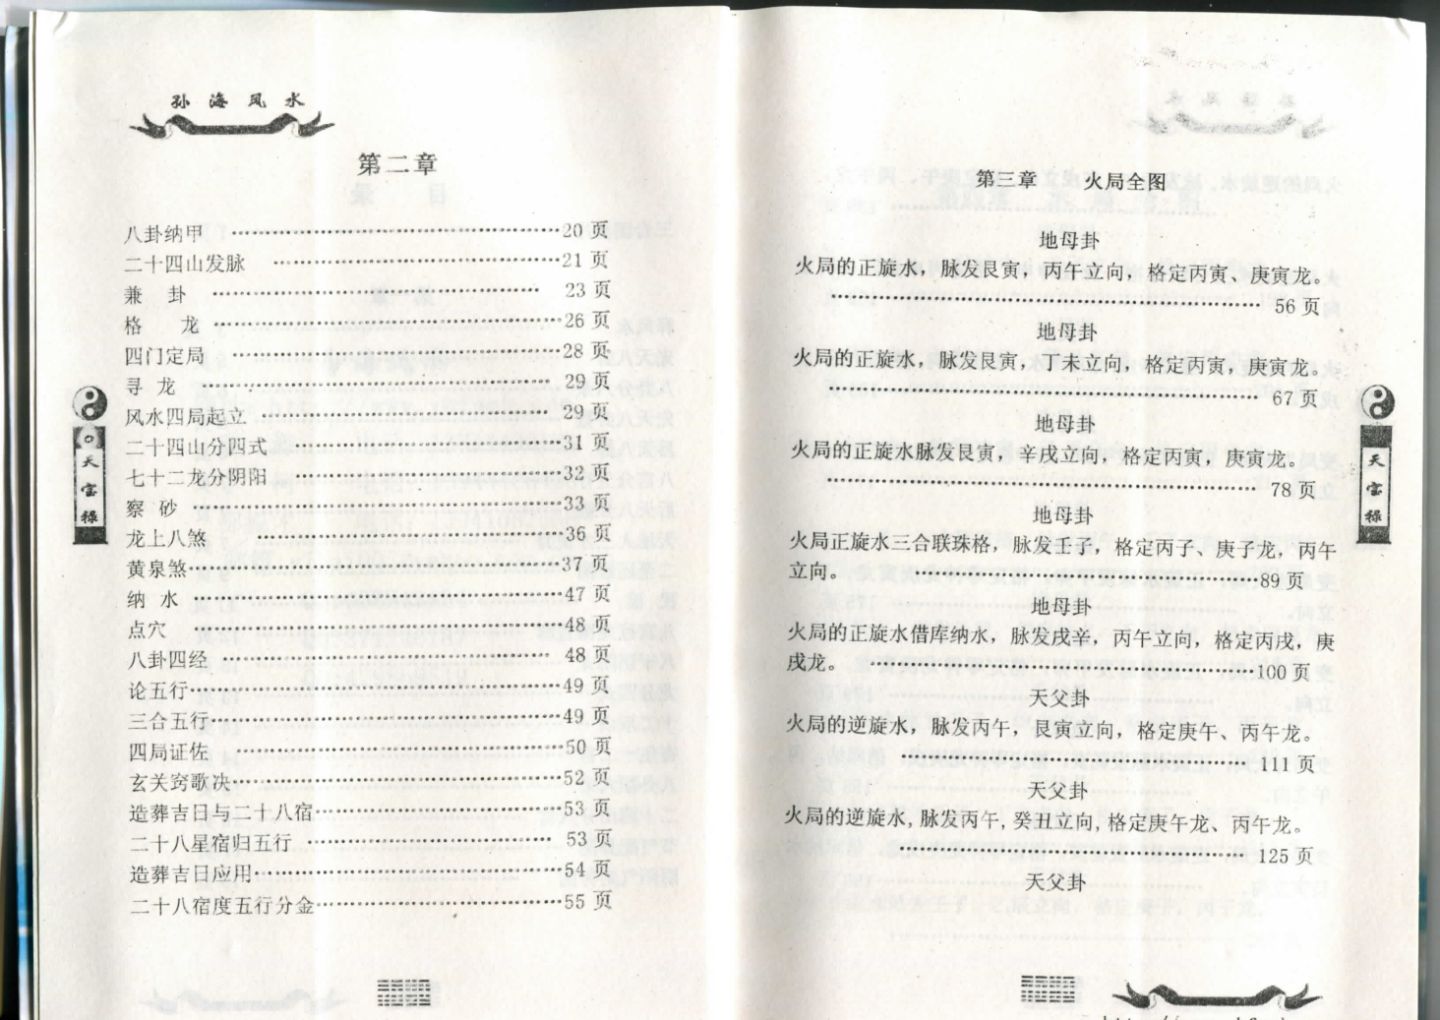 孙海风水
第二章
八卦纳甲 ………………………………20 页
二十四山发脉 ………………………………21 页
兼 卦 ……………………………… 23 页
格 龙 ………………………………26 页
四门定局 ………………………………28 页
寻 龙 ……………………………… 29 页
风水四局起立 ………………………………29 页
二十四山分四式 ………………………………31 页
七十二龙分阴阳 ………………………………32 页
察 砂 ………………………………33 页
龙上八煞 ………………………………36 页
黄泉煞………………………………37 页
纳 水 ………………………………47 页
点穴 ………………………………48 页
八卦四经 ……………………………… 48 页
论五行………………………………49 页
三合五行………………………………49 页
四局证佐 ………………………………50 页
玄关窍歌决………………………………52 页
造葬吉日与二十八宿………………………………53 页
二十八星宿归五行 ……………………………… 53 页
造葬吉日应用………………………………54 页
二十八宿度五行分金………………………………55 页
天宝禄
第三章 火局全图
地母卦
火局的正旋水，脉发艮寅，丙午立向，格定丙寅、庚寅龙。
……………………………… 56 页
地母卦
火局的正旋水，脉发艮寅，丁未立向，格定丙寅，庚寅龙。
……………………………… 67 页
地母卦
火局的正旋水脉发艮寅，辛戌立向，格定丙寅，庚寅龙。
……………………………… 78 页
地母卦
火局正旋水三合联珠格，脉发壬子，格定丙子、庚子龙，丙午
立向。 ………………………………89 页
地母卦
火局的正旋水借库纳水，脉发戌辛，丙午立向，格定丙戌，庚
戌龙。 ………………………………100 页
天父卦
火局的逆旋水，脉发丙午，艮寅立向，格定庚午、丙午龙。
……………………………… 111 页
天父卦
火局的逆旋水,脉发丙午,癸丑立向,格定庚午龙、丙午龙。
………………………………125 页
天父卦
天宝禄